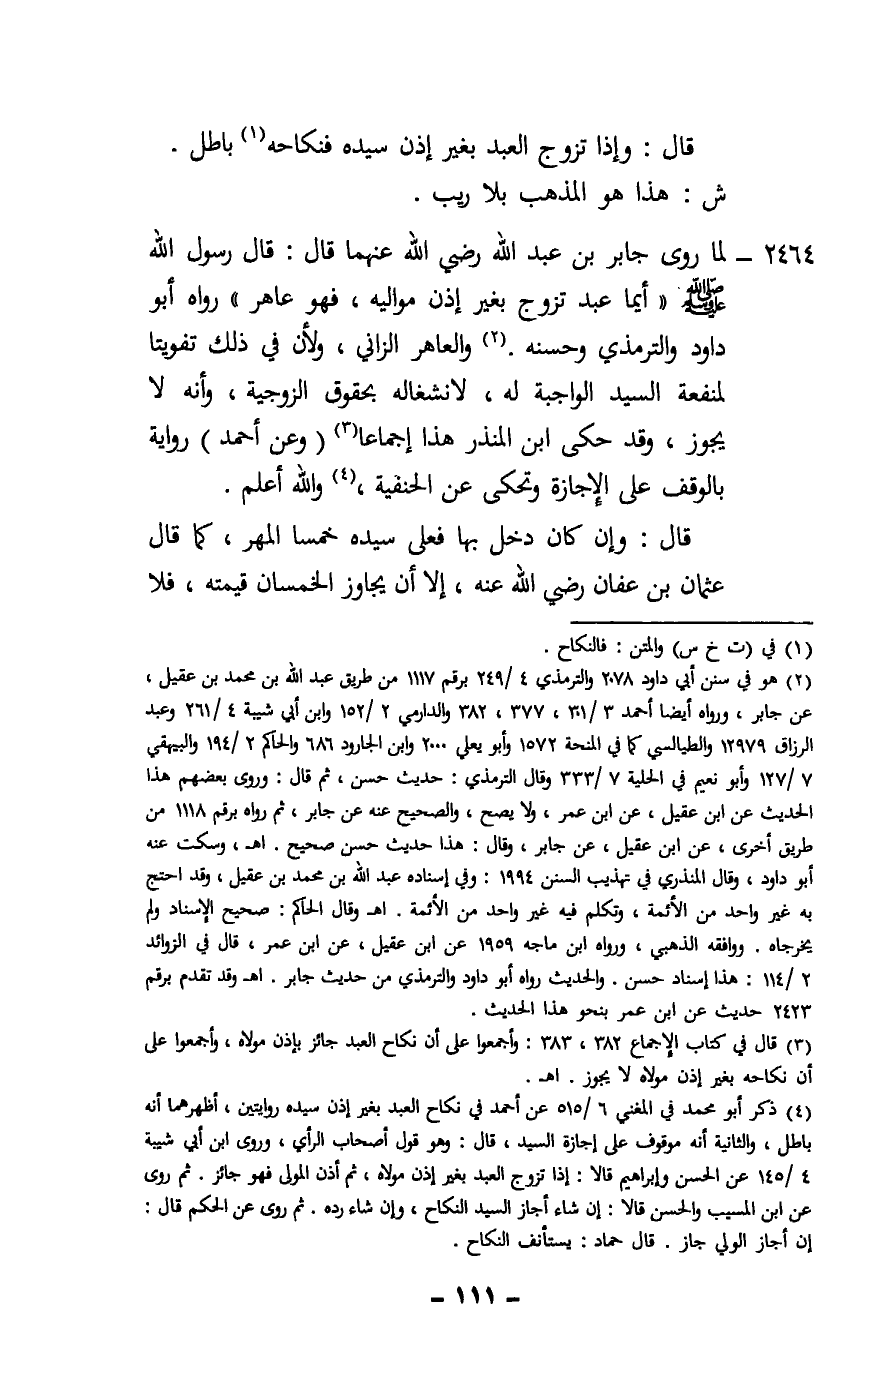 قال : وإذا تزوج العبد بغير إذن سيده فنكاحه(١) باطل .
ش : هذا هو المذهب بلا ريب .
٢٤٦٤ – لما روى جابر بن عبد الله رضي الله عنهما قال : قال رسول الله
ﷺ « أيما عبد تزوج بغير إذن مواليه ، فهو عاهر » رواه أبو
داود والترمذي وحسنه .(٢) والعاهر الزاني ، ولأن في ذلك تفويتا
لمنفعة السيد الواجبة له ، لانشغاله بحقوق الزوجية ، وأنه لا
يجوز ، وقد حكى ابن المنذر هذا إجماعا(٣) ( وعن أحمد ) رواية
بالوقف على الإجازة وتحكى عن الحنفية ،(٤) والله أعلم .
قال : وإن كان دخل بها فعلى سيده خمسا المهر ، كما قال
عثمان بن عفان رضي الله عنه ، إلا أن يجاوز الخمسان قيمته ، فلا
(١) في (ت خ س) والمتن : فالنكاح .
(٢) هو في سنن أبي داود ٢٠٧٨ والترمذي ٤ /٢٤٩ برقم ١١١٧ من طريق عبد الله بن محمد بن عقيل ،
عن جابر ، ورواه أيضا أحمد ٣ /٣٠١ ، ٣٧٧ ، ٣٨٢ والدارمي ٢ /١٥٢ وابن أبي شيبة ٤ /٢٦١ وعبد
الرزاق ١٢٩٧٩ والطيالسي كما في المنحة ١٥٧٢ وأبو يعلي ٢٠٠٠ وابن الجارود ٦٨٦ والحاكم ٢ /١٩٤ والبيهقي
٧ /١٢٧ وأبو نعيم في الحلية ٧ /٣٣٣ وقال الترمذي : حديث حسن ، ثم قال : وروى بعضهم هذا
الحديث عن ابن عقيل ، عن ابن عمر ، ولا يصح ، والصحيح عنه عن جابر ، ثم رواه برقم ١١١٨ من
طريق أخرى ، عن ابن عقيل ، عن جابر ، وقال : هذا حديث حسن صحيح . اهـ ، وسكت عنه
أبو داود ، وقال المنذري في تهذيب السنن ١٩٩٤ : وفي إسناده عبد الله بن محمد بن عقيل ، وقد احتج
به غير واحد من الأئمة ، وتكلم فيه غير واحد من الأئمة . اهـ وقال الحاكم : صحيح الإسناد ولم
يخرجاه . ووافقه الذهبي ، ورواه ابن ماجه ١٩٥٩ عن ابن عقيل ، عن ابن عمر ، قال في الزوائد
٢ /١١٤ : هذا إسناد حسن . والحديث رواه أبو داود والترمذي من حديث جابر . اهـ وقد تقدم برقم
٢٤٢٣ حديث عن ابن عمر بنحو هذا الحديث .
(٣) قال في كتاب الإجماع ٣٨٢ ، ٣٨٣ : وأجمعوا على أن نكاح العبد جائز بإذن مولاه ، وأجمعوا على
أن نكاحه بغير إذن مولاه لا يجوز . اهـ .
(٤) ذكر أبو محمد في المغني ٦ /٥١٥ عن أحمد في نكاح العبد بغير إذن سيده روايتين ، أظهرهما أنه
باطل ، والثانية أنه موقوف على إجازة السيد ، قال : وهو قول أصحاب الرأي ، وروى ابن أبي شيبة
٤ /١٤٥ عن الحسن وإبراهيم قالا : إذا تزوج العبد بغير إذن مولاه ، ثم أذن المولى فهو جائز . ثم روى
عن ابن المسيب والحسن قالا : إن شاء أجاز السيد النكاح ، وإن شاء رده . ثم روى عن الحكم قال :
إن أجاز الولي جاز . قال حماد : يستأنف النكاح .
– ١١١ –